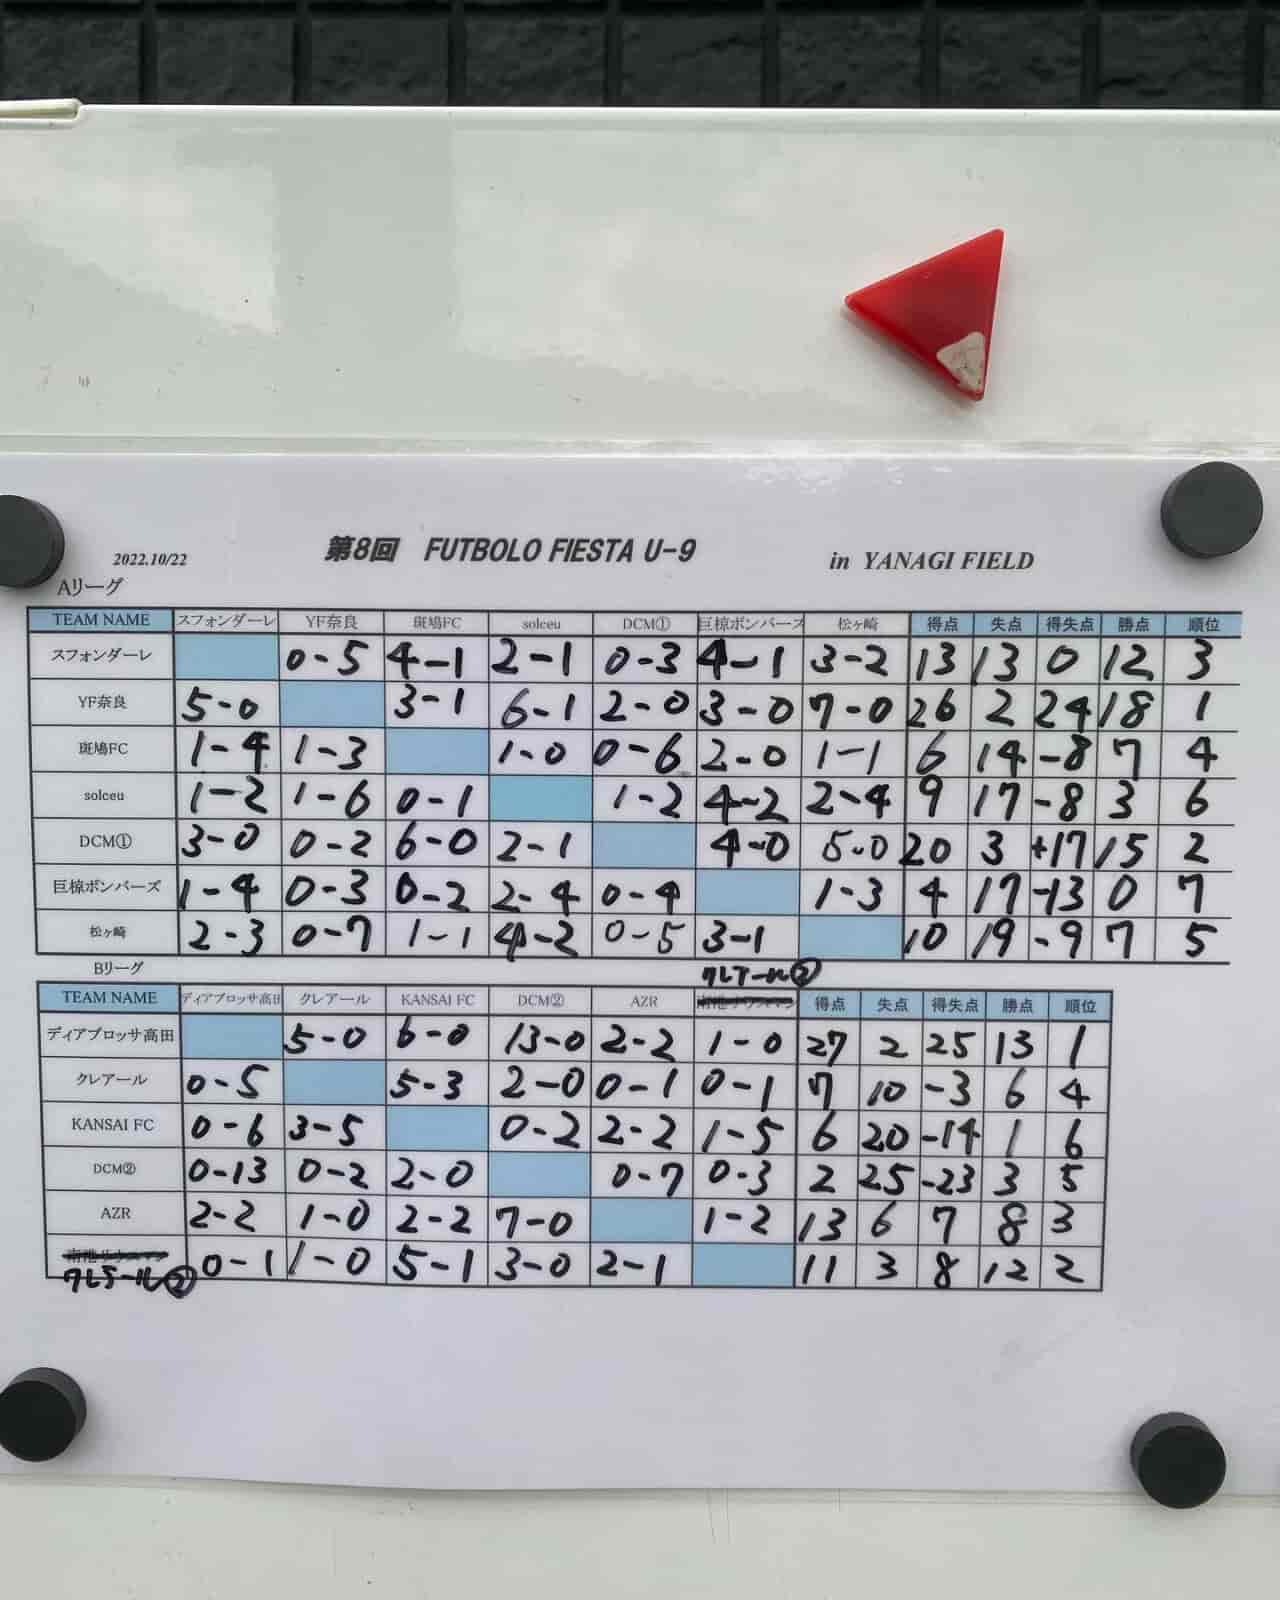 2022.10/22 第8回 FUTBOLO FIESTA U-9 in YANAGI FIELD
Aリーグ
TEAM NAME スフォンダーレ YF奈良 斑鳩FC solceu DCM① 巨椋ボンバーズ 松ヶ崎 得点 失点 得失点 勝点 順位
スフォンダーレ 0-5 4-1 2-1 0-3 4-1 3-2 13 13 0 12 3
YF奈良 5-0 3-1 6-1 2-0 3-0 7-0 26 2 24 18 1
斑鳩FC 1-4 1-3 1-0 0-6 2-0 1-1 6 14 -8 7 4
solceu 1-2 1-6 0-1 1-2 4-2 2-4 9 17 -8 3 6
DCM① 3-0 0-2 6-0 2-1 4-0 5-0 20 3 +17 15 2
巨椋ボンバーズ 1-4 0-3 0-2 2-4 0-4 1-3 4 17 -13 0 7
松ヶ崎 2-3 0-7 1-1 4-2 0-5 3-1 10 19 -9 7 5
Bリーグ クレアール②
TEAM NAME ディアブロッサ高田 クレアール KANSAI FC DCM② AZR 得点 失点 得失点 勝点 順位
ディアブロッサ高田 5-0 6-0 13-0 2-2 1-0 27 2 25 13 1
クレアール 0-5 5-3 2-0 0-1 0-1 7 10 -3 6 4
KANSAI FC 0-6 3-5 0-2 2-2 1-5 6 20 -14 1 6
DCM② 0-13 0-2 2-0 0-7 0-3 2 25 -23 3 5
AZR 2-2 1-0 2-2 7-0 1-2 13 6 7 8 3
クレアール② 0-1 1-0 5-1 3-0 2-1 11 3 8 12 2